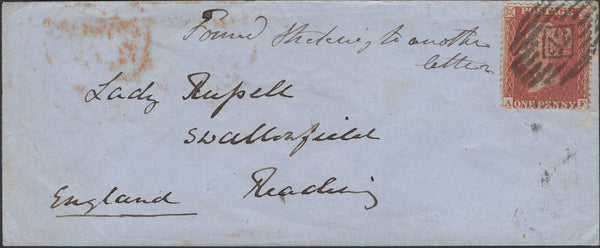 Found sticking to another
letter
Lady Russell
Swallowfield
Reading
England
ONE PENNY
A F